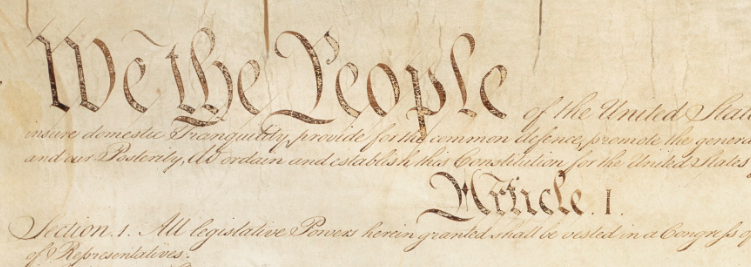 We the People of the United Stat
insure domestic Tranquility, provide for the common defence, promote the genera
and our Posterity, do ordain and establish this Constitution for the United States
Article. I.
Section. 1. All legislative Powers herein granted shall be vested in a Congress of
of Representatives.